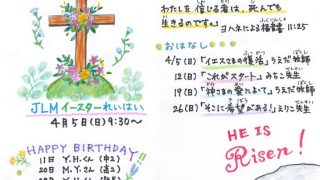 JLM イースターれいはい
4月5日(日)9:30〜
HAPPY BIRTHDAY
11日 Y.H.くん(中2)
20日 M.Y.さん(高2)
わたしを信じる者は、死んでも
生きるのです。」
ヨハネによる福音書 11:25
おはなし
4/5(日)「イエスさまの復活」うえだ牧師
12(日)「これがスタート」みち子先生
19(日)「神さまの愛において」うえだ牧師
26(日)「そこに希望がある!」えりこ先生
HE IS
Risen!